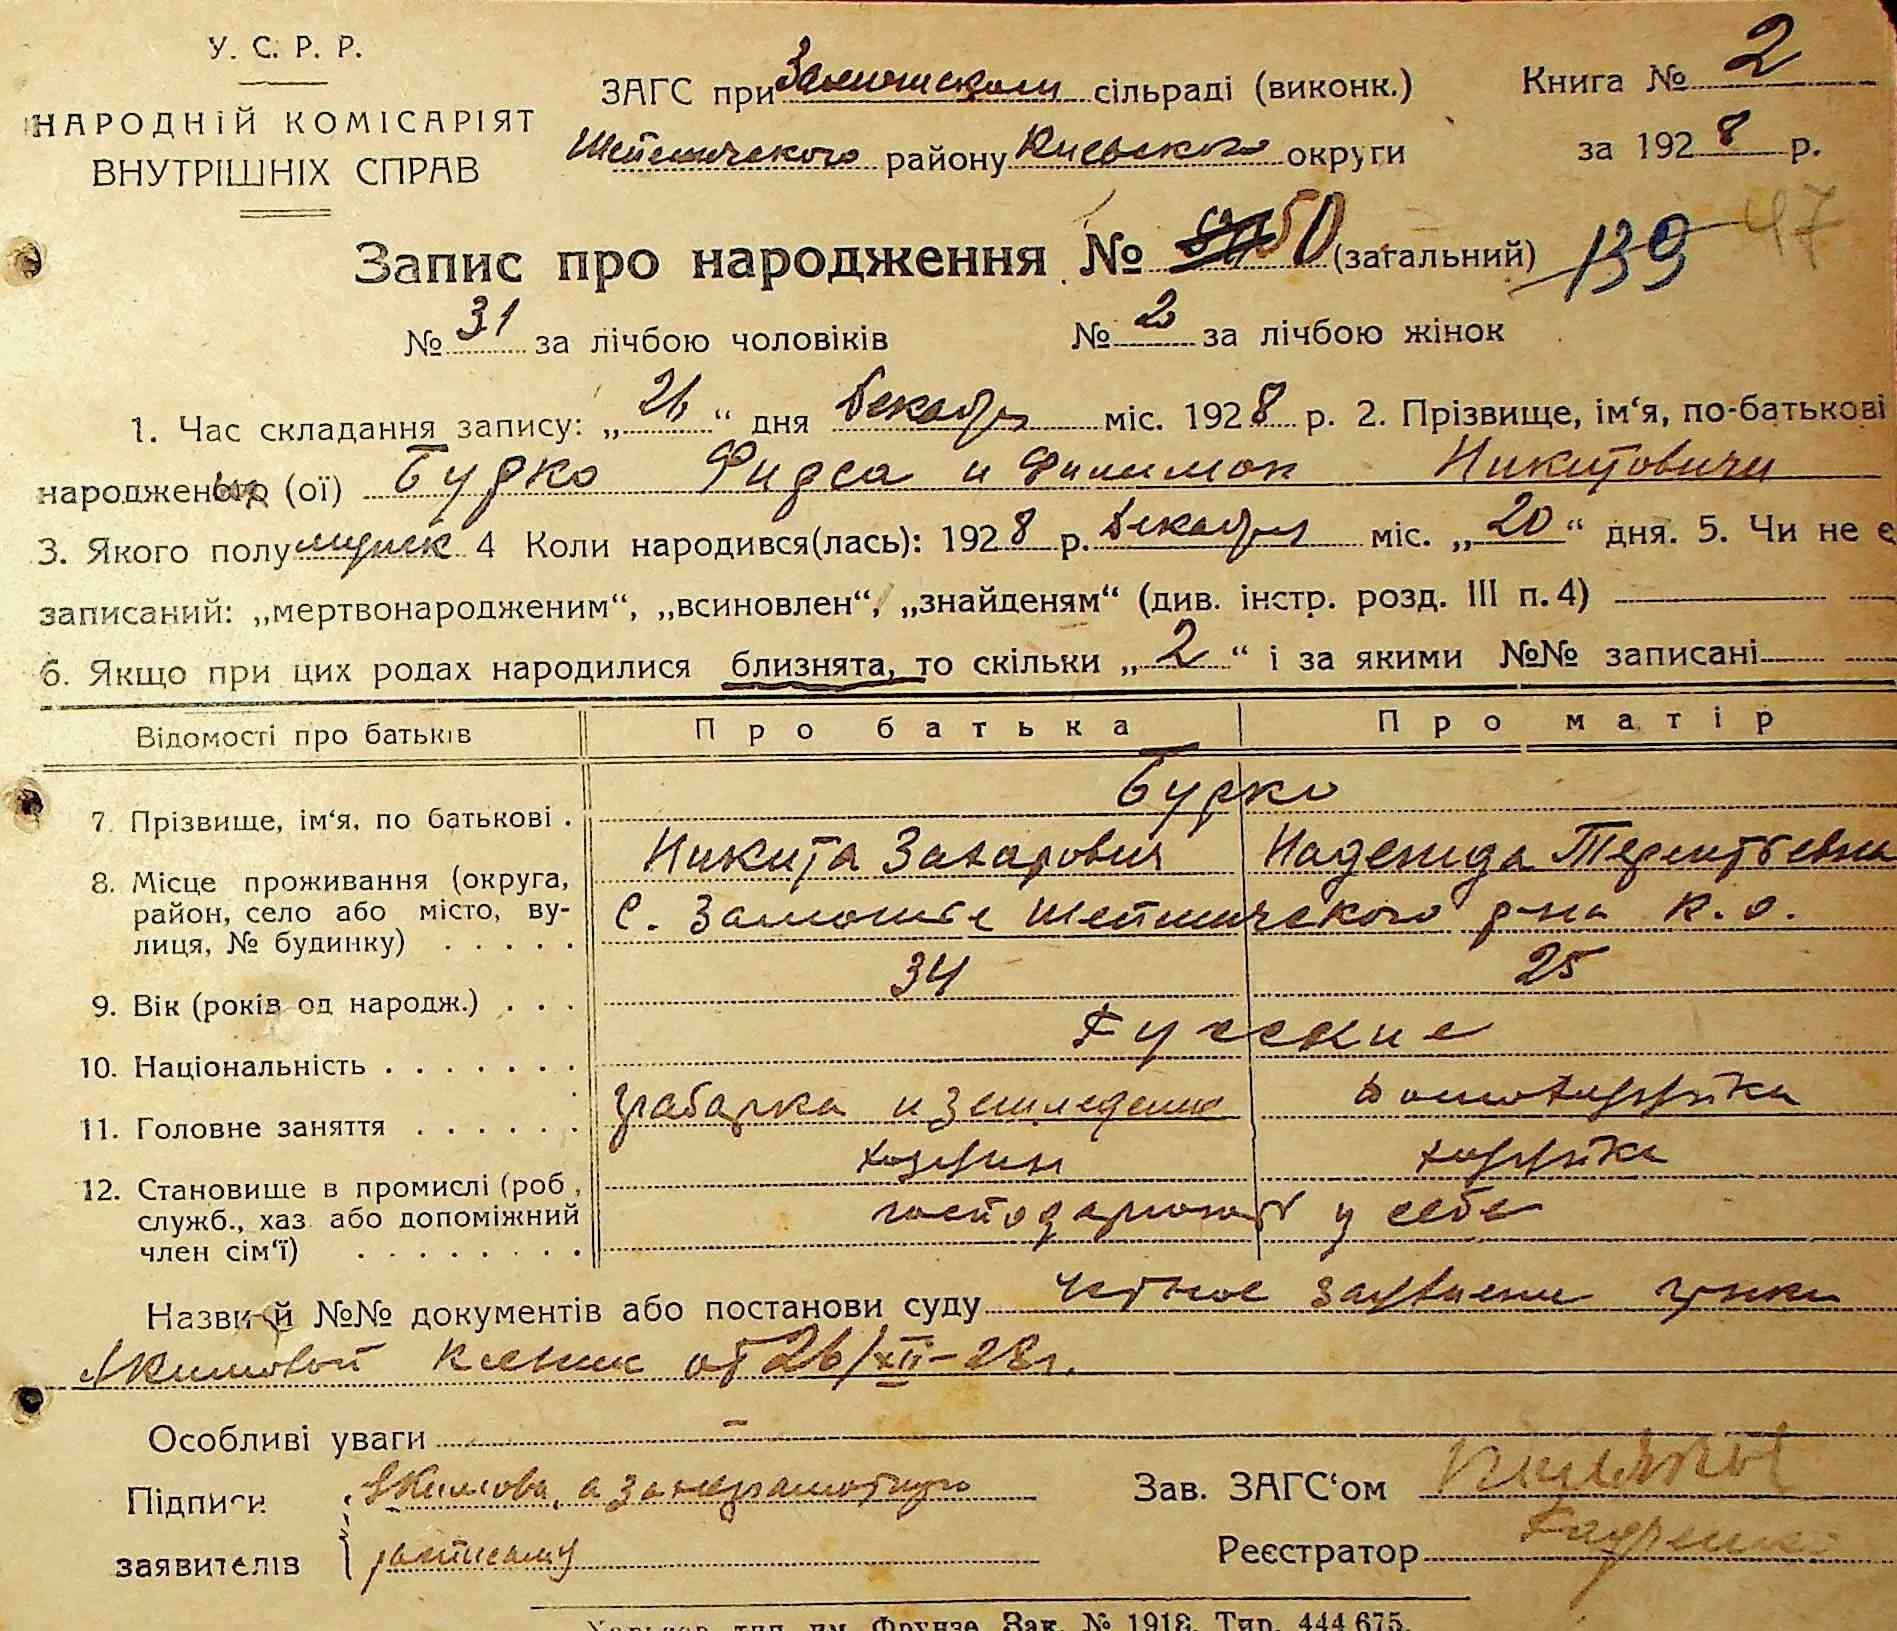 У. С. Р. Р.
НАРОДНІЙ КОМІСАРІЯТ
ВНУТРІШНІХ СПРАВ
ЗАГС при Замошском сільраді (виконк.)
Шепеличского району Киевского округи
Книга № 2
за 1928 р.
Запис про народження № 50 (загальний) 139 47
№ 31 за лічбою чоловіків № 2 за лічбою жінок
1. Час складання запису: „26“ дня Декабря міс. 1928 р. 2. Прізвище, ім‘я, по-батькові
народжених (ої) Бурко Фидса и Филимон Никитовичи
3. Якого полу мужск 4 Коли народився(лась): 1928 р. Декабря міс. „20“ дня. 5. Чи не є
записаний: „мертвонародженим“, „всиновлен“, „знайденям“ (див. інстр. розд. III п. 4)
6. Якщо при цих родах народилися близнята, то скільки „2“ і за якими №№ записані
Відомості про батьків Про батька Про матір
7. Прізвище, ім‘я, по батькові . Бурко
Никита Захарович Надежда Терентьевна
8. Місце проживання (округа, район, село або місто, ву-
лиця, № будинку) . . . . . С. Замошье Шепеличского р-на К. о.
9. Вік (років од народж.) . . . 34 25
10. Національність . . . . . . . Русские
11. Головне заняття . . . . . . грабарка и земледелие домохозяйка
12. Становище в промислі (роб, служб., хаз або допоміжний
член сім‘ї) . . . . . . . . хозяин хозяйка
господарюют у себе
Назви й №№ документів або постанови суду устное заявлени гр-ки
Акимовой от 26/XII-28 г.
Особливі уваги –
Підписи заявителів Акимова, а за неграмотную
расписалсу
Зав. ЗАГС‘ом
Реєстратор
Харьков тип. им. Фрунзе Зак. № 1918. Тир. 444 675.